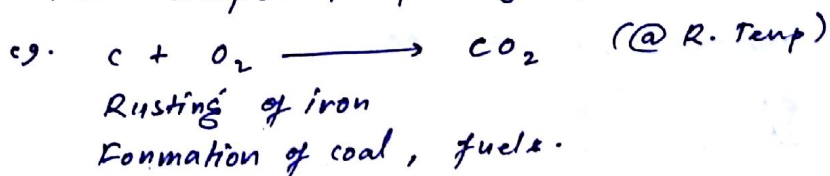 eg. C + O₂ ⟶ CO₂ (@ R. Temp)
Rusting of iron
Formation of coal, fuels.